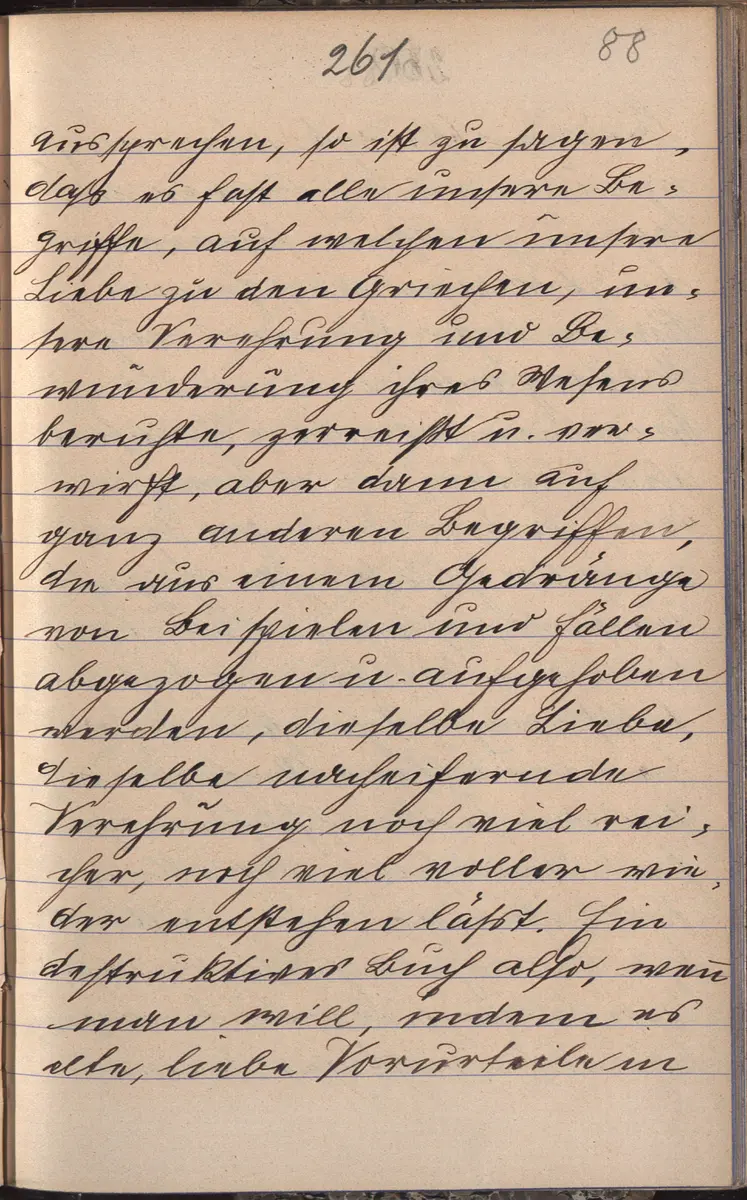 261
88
aussprechen, so ist zu sagen,
daß es fast alle unsere Be-
griffe, auf welchen unsere
Liebe zu den Griechen, un-
sere Verehrung und Be-
wunderung ihres Wesens
beruhte, zerreißt u. ver-
wirft, aber dann auf
ganz anderen Begriffen,
die aus einem Gedränge
von Beispielen und Fällen
abgezogen u. aufgehoben
werden, dieselbe Liebe,
dieselbe nacheifernde
Verehrung noch viel rei-
cher, noch viel voller wie-
der entstehen läßt. Ein
destruktives Buch also, wenn
man will, indem es
alte, liebe Vorurteile in